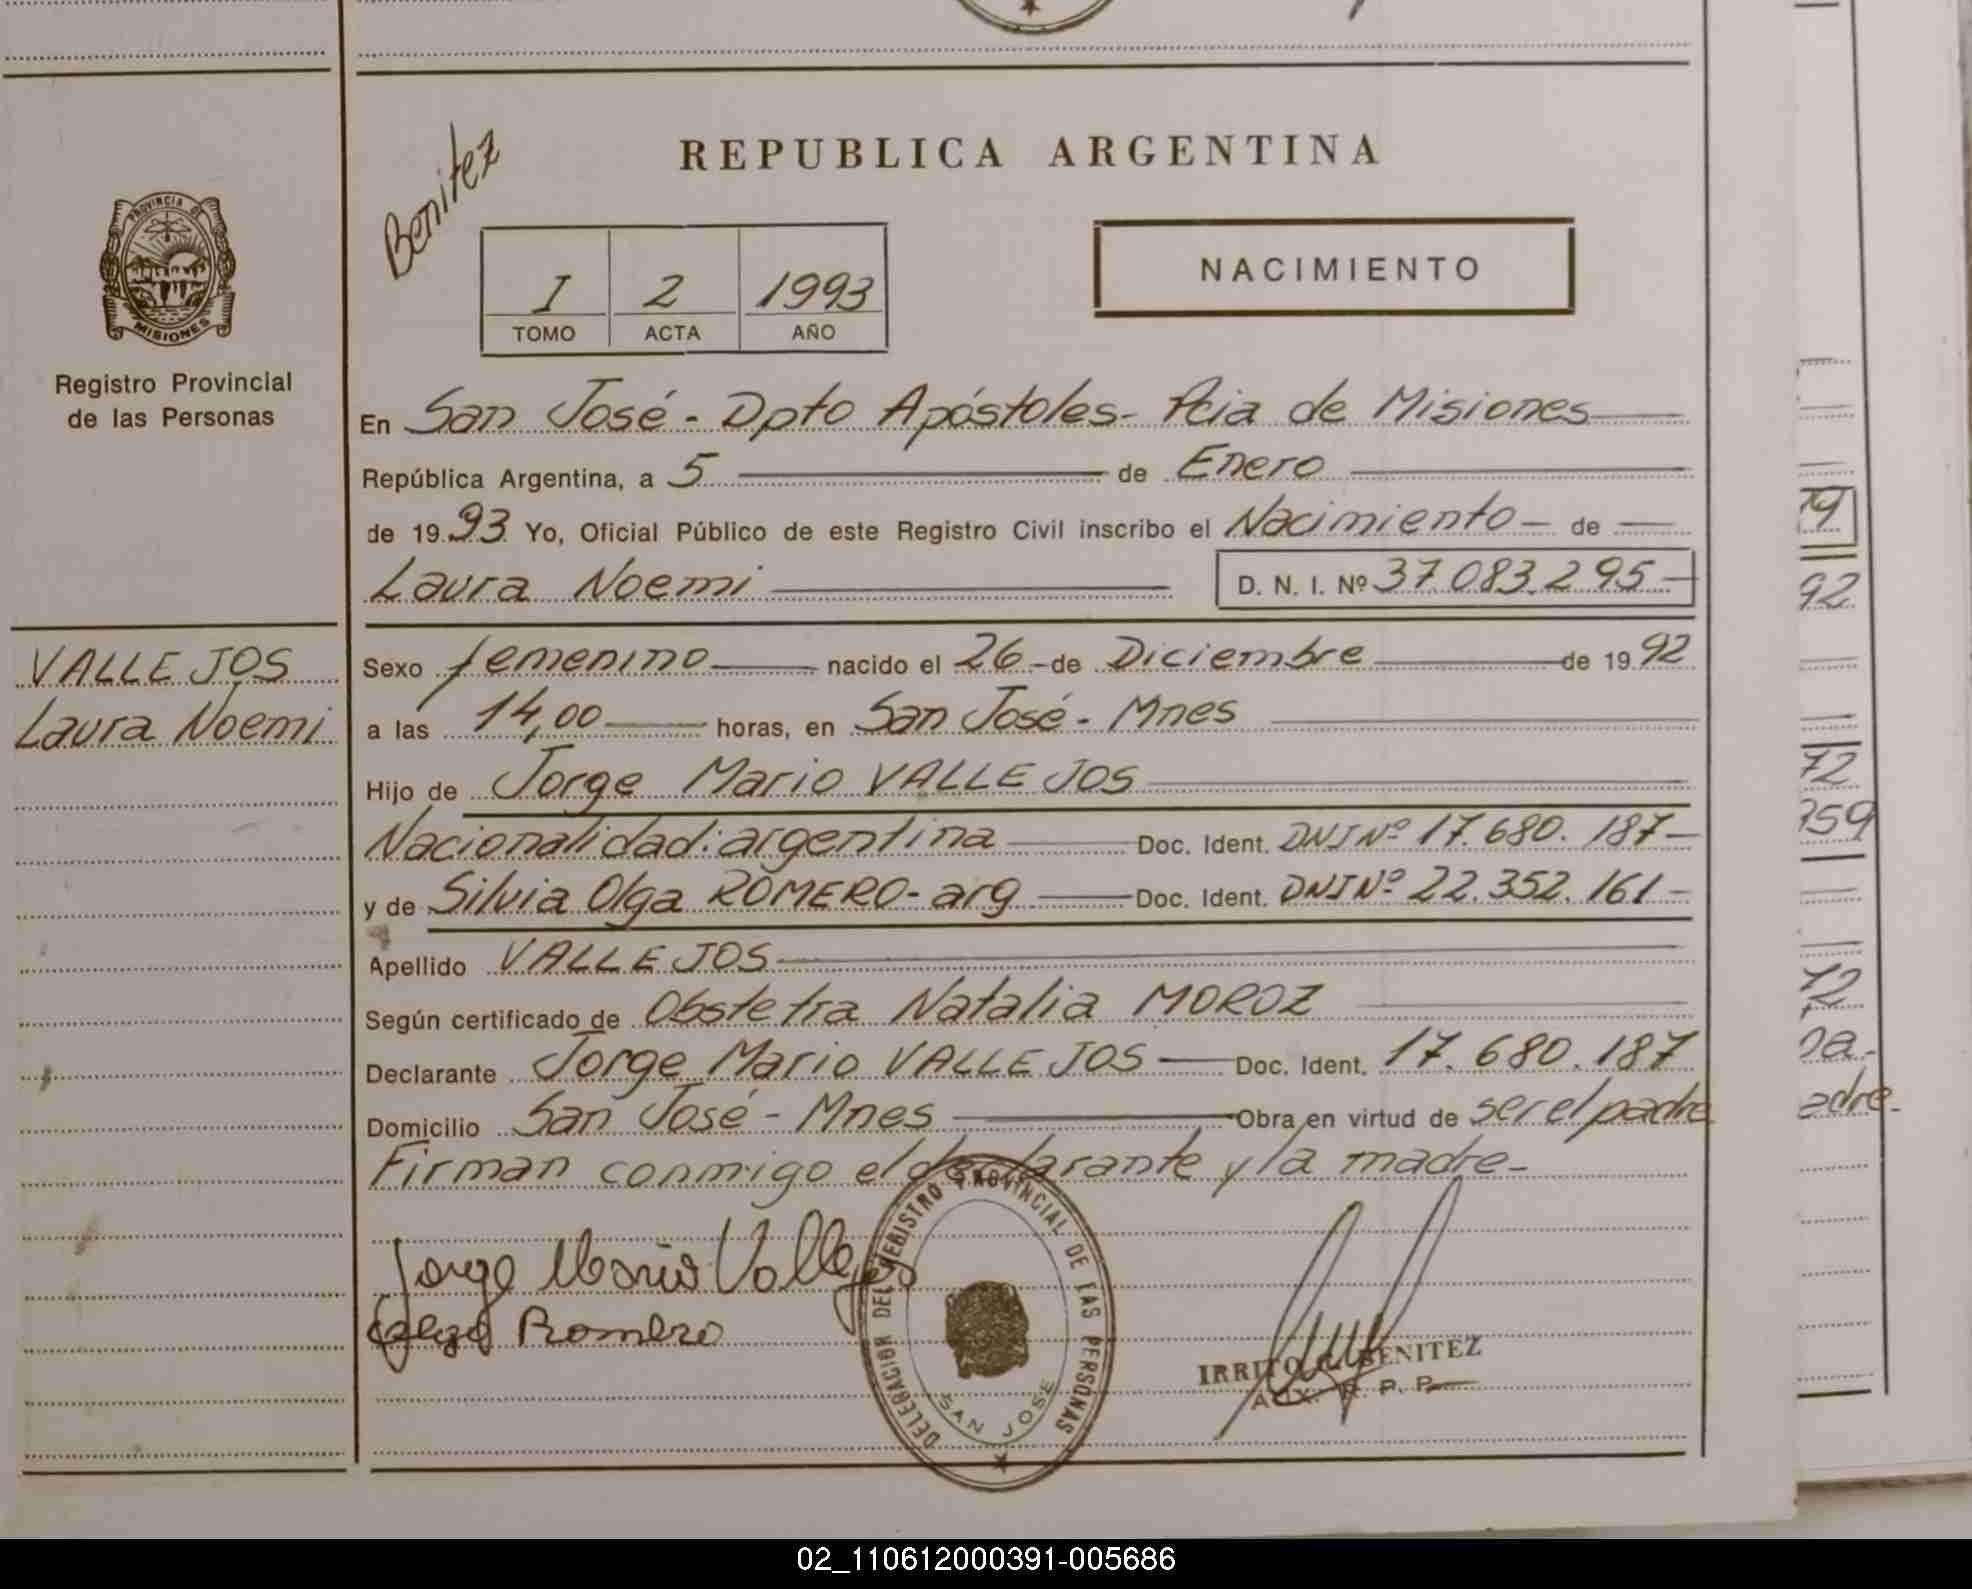 REPUBLICA ARGENTINA
Benitez
I 2 1993
TOMO ACTA AÑO
NACIMIENTO
PROVINCIA DE
MISIONES
Registro Provincial
de las Personas
En San José - Dpto Apóstoles - Pcia de Misiones
República Argentina, a 5 de Enero
de 19 93 Yo, Oficial Público de este Registro Civil inscribo el Nacimiento - de
Laura Noemi D. N. I. Nº 37.083.295-
VALLEJOS
Laura Noemi
Sexo femenino nacido el 26 - de Diciembre de 19 92
a las 14,00 horas, en San José - Mnes
Hijo de Jorge Mario VALLEJOS
Nacionalidad: argentina Doc. Ident. DNI Nº 17.680.187-
y de Silvia Olga ROMERO - arg Doc. Ident. DNI Nº 22.352.161-
Apellido VALLEJOS
Según certificado de Obstetra Natalia MOROZ
Declarante Jorge Mario VALLEJOS Doc. Ident. 17.680.187
Domicilio San José - Mnes Obra en virtud de ser el padre
Firman conmigo el declarante y la madre-
Jorge Mario Vallejos
Romero
DELEGACION DEL REGISTRO PROVINCIAL DE LAS PERSONAS
SAN JOSE
BENITEZ
AUX. R. P. P.
79
92
72
759
72
na-
adre-
02_110612000391-005686